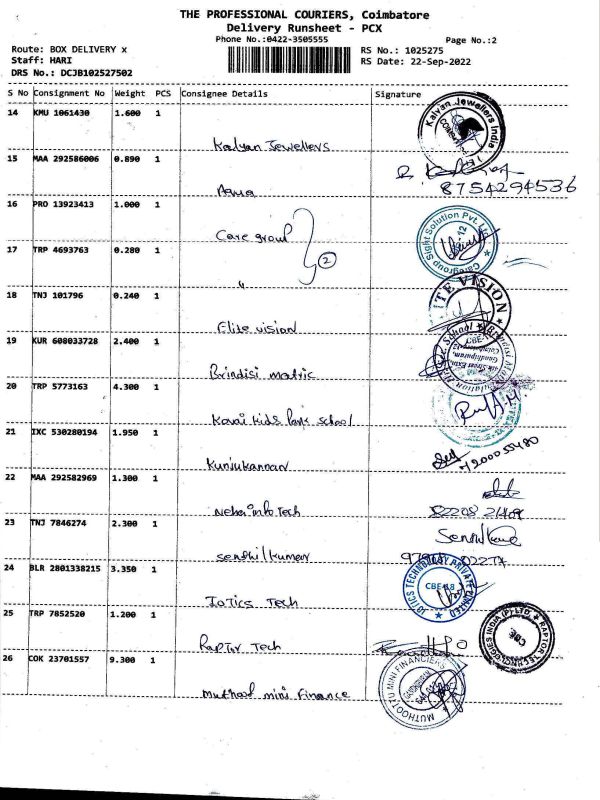 THE PROFESSIONAL COURIERS, Coimbatore
Delivery Runsheet - PCX
Phone No.:0422-3505555
Page No.:2
Route: BOX DELIVERY x
RS No.: 1025275
Staff: HARI
RS Date: 22-Sep-2022
DRS No.: DCJB102527502
S No Consignment No Weight PCS Consignee Details Signature
14 KMU 1061430 1.600 1
Kalyan Jewellers
Kalyan Jewellers India
15 MAA 292586006 0.890 1
Aqua
8754294536
16 PRO 13923413 1.000 1
Care group
Caregroup Sight Solution Pvt. Lt
17 TRP 4693763 0.280 1
"
2
18 TNJ 101796 0.240 1
Elite vision
ITE VISION
19 KUR 608033728 2.400 1
Brindisi matric
20 TRP 5773163 4.300 1
Kovai Kids Park school
21 IXC 530280194 1.950 1
Kunjukannan
22 MAA 292582969 1.300 1
Neha info Tech
23 TNJ 7846274 2.300 1
Senthilkumar
24 BLR 2801338215 3.350 1
IoTics Tech
IOTICS TECHNOLOGY PRIVATE LIMITED
CBE-18
25 TRP 7852520 1.200 1
Raptor Tech
RAPTOR TECHNOLOGIES INDIA (P) LTD.
CBE
26 COK 23701557 9.300 1
Muthoot mini Finance
MUTHOOTTU MINI FINANCIERS